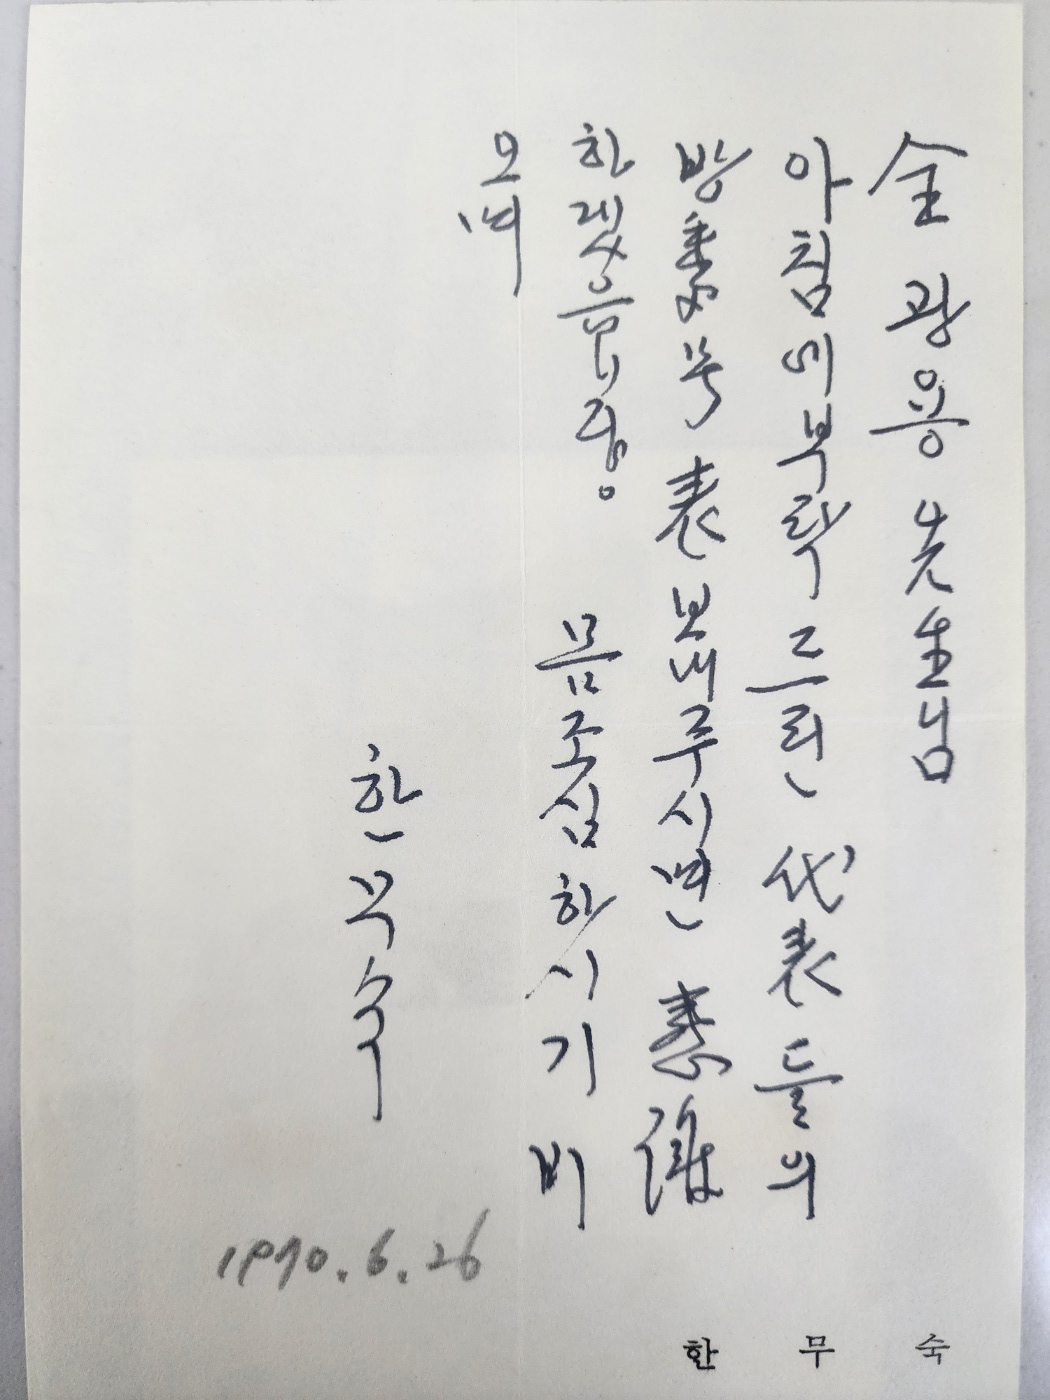 全 광용 先生님
아침에 부탁 드린 代表들의
방番号 表 보내주시면 感謹
하겠읍니다。 몸조심 하시기 비
오며
한무숙
1970.6.26
한 무 숙